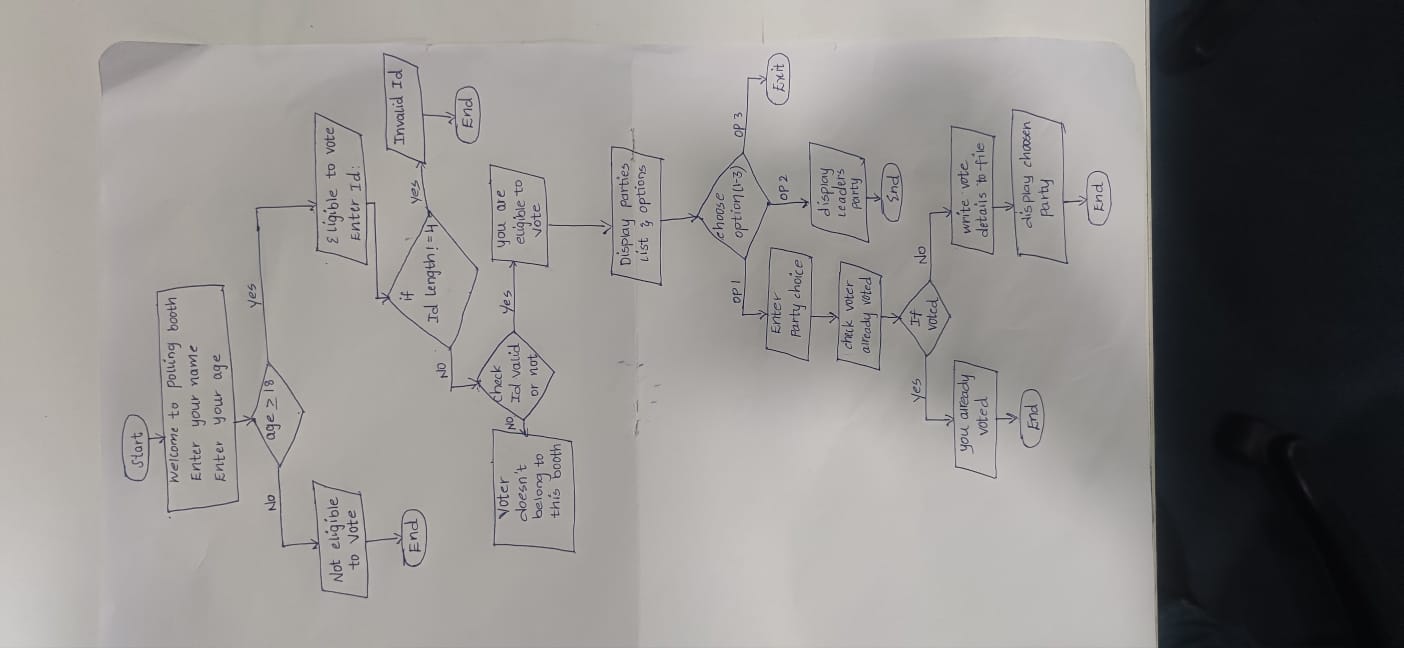 Start
Welcome to Polling booth
Enter your name
Enter your age
age ≥ 18
No
Yes
Not eligible
to Vote
End
Eligible to vote
Enter Id:
if
Id length != 4
Yes
Invalid Id
End
NO
Check
Id valid
or not
NO
Voter
doesn't
belong to
this booth
Yes
you are
eligible to
vote
Display Parties
List & options
choose
option(1-3)
OP 1
OP 2
OP 3
Exit
display
Leaders
Party
End
Enter
Party choice
check voter
already voted
If
voted
Yes
NO
you already
voted
End
write vote
details to file
display choosen
Party
End